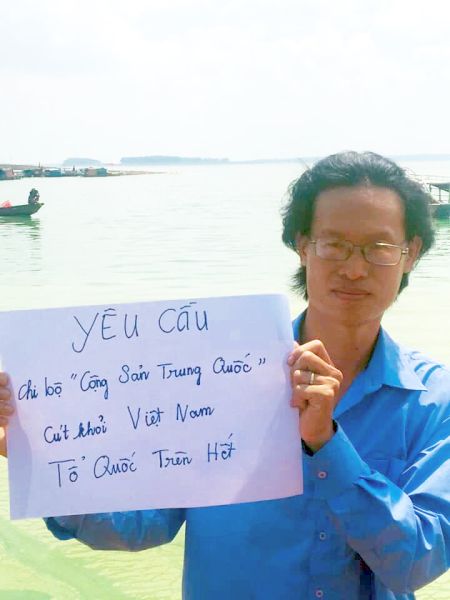 YÊU CẦU
chi bộ "Cộng Sản Trung Quốc"
Cút khỏi Việt Nam
Tổ Quốc Trên Hết